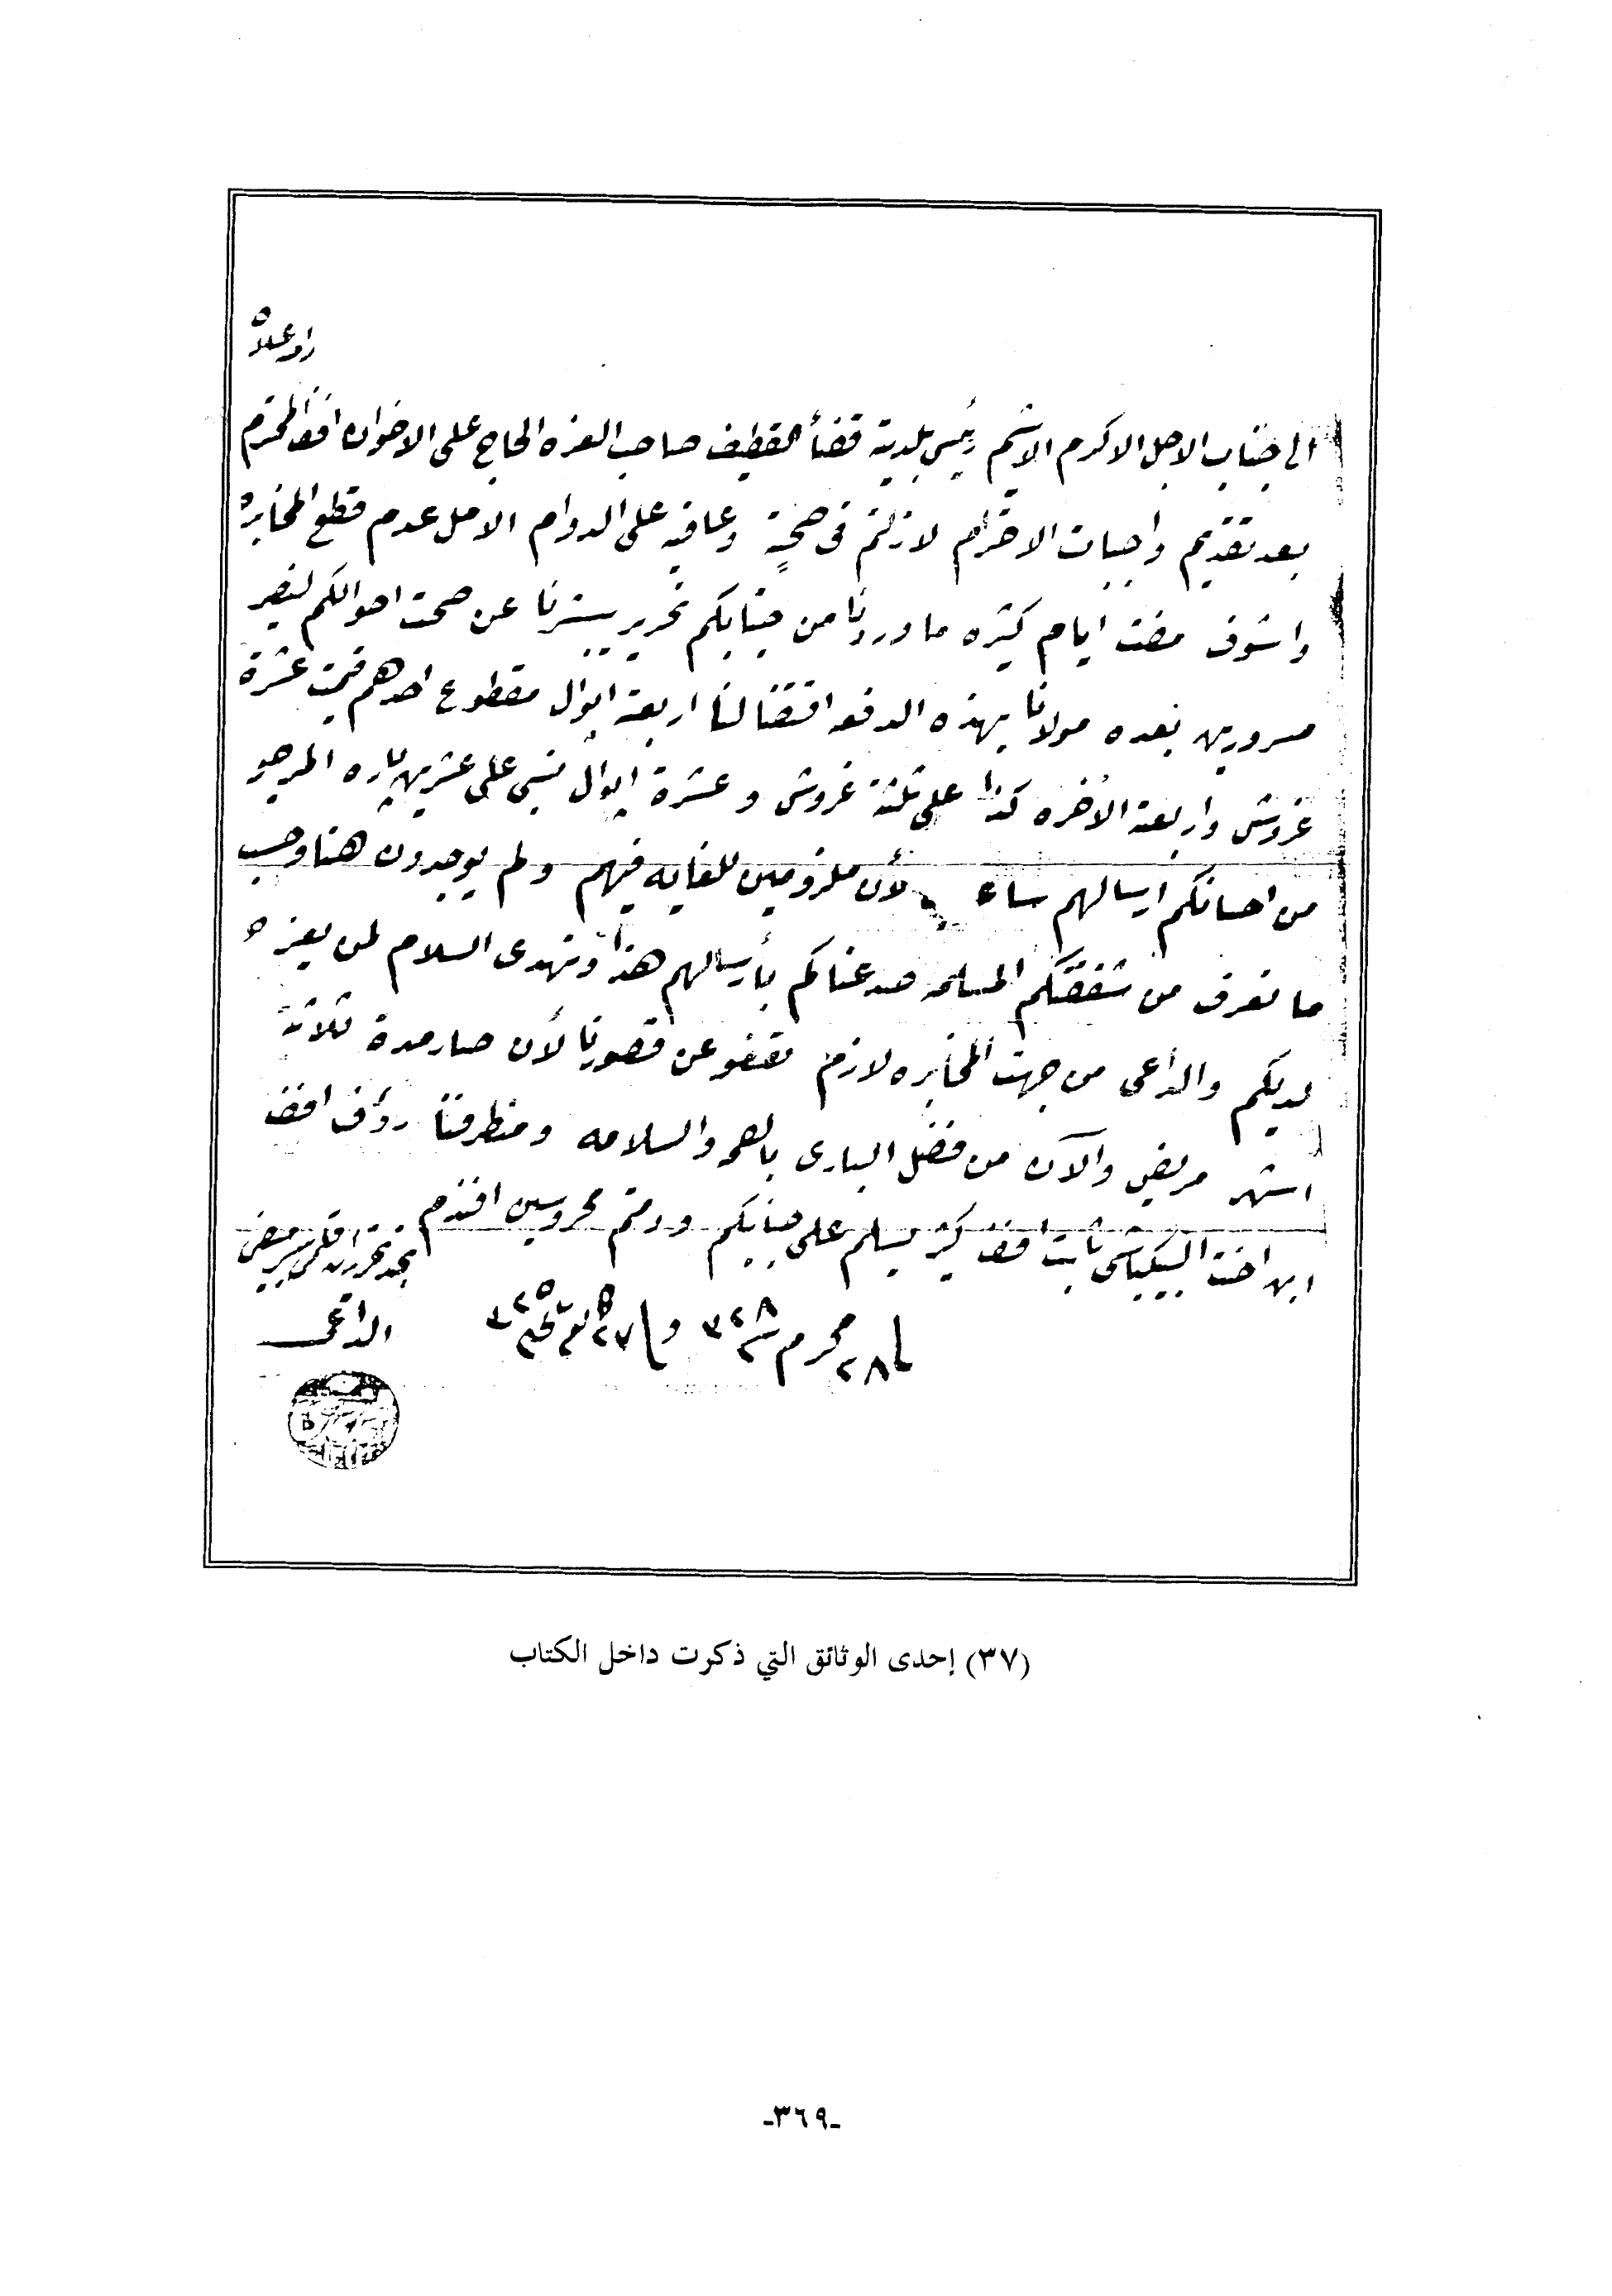 زاد علاه
الى جناب الاجل الاكرم الاشيم رئيس بلدية قضأ القطيف صاحب العزه الحاج على الاخوان افند المحترم
بعد تقديم واجبات الاحترام لازلتم فى صحةٍ وعافيه على الدوام الامل عدم قطع المخابره
واشوف مضت ايام كثيره ما وردنا من جنابكم تحرير يسرنا عن صحت احوالكم لنصر
مسرورين بعده مولانا بهذه الدفعه اقتضا لنا اربعة ابوال مقطوع احدهم قيمت عشرة
غروش واربعة الاخره كذا على ثلثة غروش وعشرة ابوال على عشرين پاره المرجو
من احسانكم ارسالهم ساعه لأن ملزومين للغايه فيهم ولم يوجدون هنا وحسب
ما نعرف من شفقتكم المسلمه صدعناكم بأرسالهم هذا ونهدى السلام لمن يعزه
لديكم والداعى من جهت المخابره لازم تعفو عن قصورنا لأن صار مدة ثلاثة
اشهر مريض والآن من فضل البارى بالصحه والسلامه ومنطرفنا رؤف افند
ابن اخت البيكباشى ثابت افند كثير يسلم على جنابكم ودمتم محروسين افندم
الداعى
٢٨ محرم سنة ٣٢٨ و ٢٧ ٣٢٥
(٣٧) إحدى الوثائق التي ذكرت داخل الكتاب
-٣٦٩-